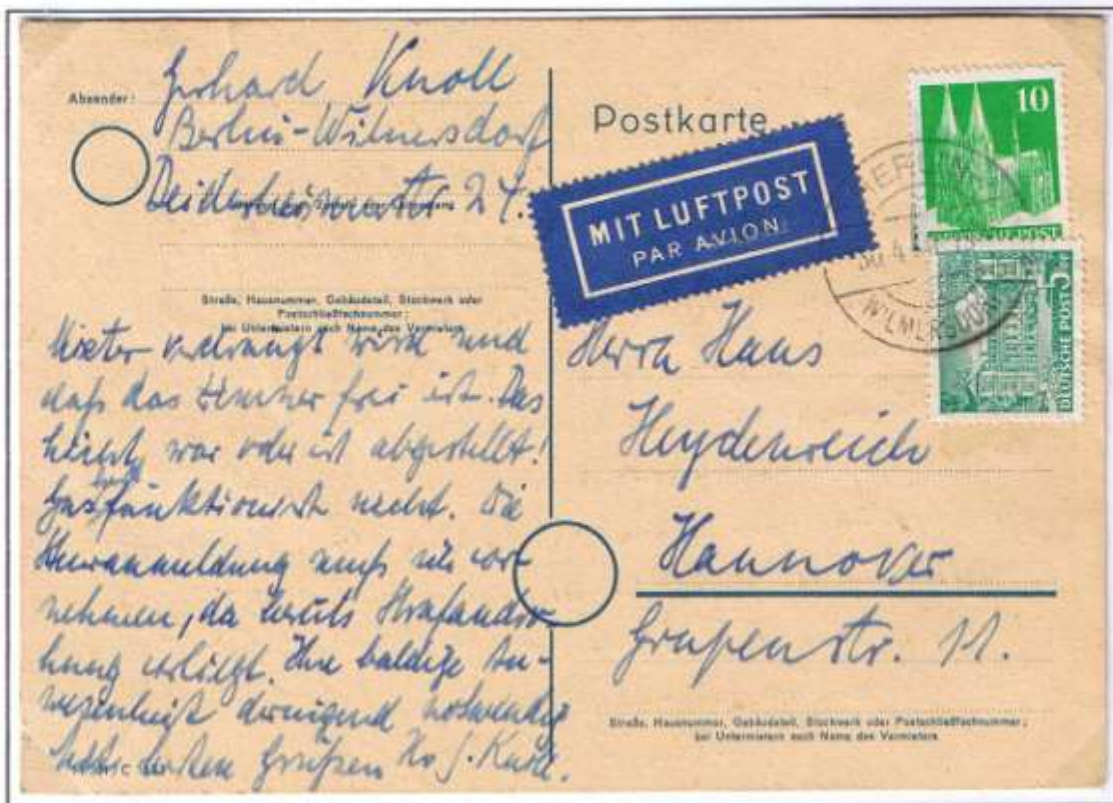 Absender:
Gerhard Knoll
Berlin-Wilmersdorf
Deidesheimerstr 24.
Straße, Hausnummer, Gebäudeteil, Stockwerk oder
Postschließfachnummer;
bei Untermietern auch Name des Vermieters
Mieter verdrängt wird und
daß das Zimmer frei ist. Das
Licht war oder ist abgestellt!
Gas funktioniert nicht. Die
muß ich vor-
nehmen, da bereits Strafandro-
hung vorliegt. Ihre baldige An-
wesenheit dringend notwendig
besten Grüßen Ihr G. Knoll.
Postkarte
MIT LUFTPOST
PAR AVION
10
DEUTSCHE POST
BERLIN
WILMERSDORF
5
DEUTSCHE POST
Herrn Hans
Heydenreich
Hannover
Grupenstr. 11.
Straße, Hausnummer, Gebäudeteil, Stockwerk oder Postschließfachnummer;
bei Untermietern auch Name des Vermieters